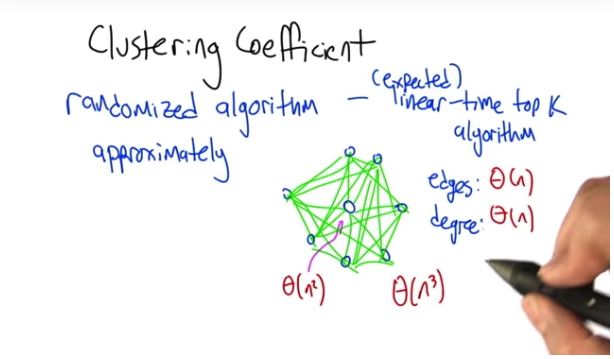 Clustering Coefficient
(expected)
randomized algorithm - linear-time top K
algorithm
approximately
edges: Θ(n)
degree: Θ(n)
Θ(n²)
Θ(n³)